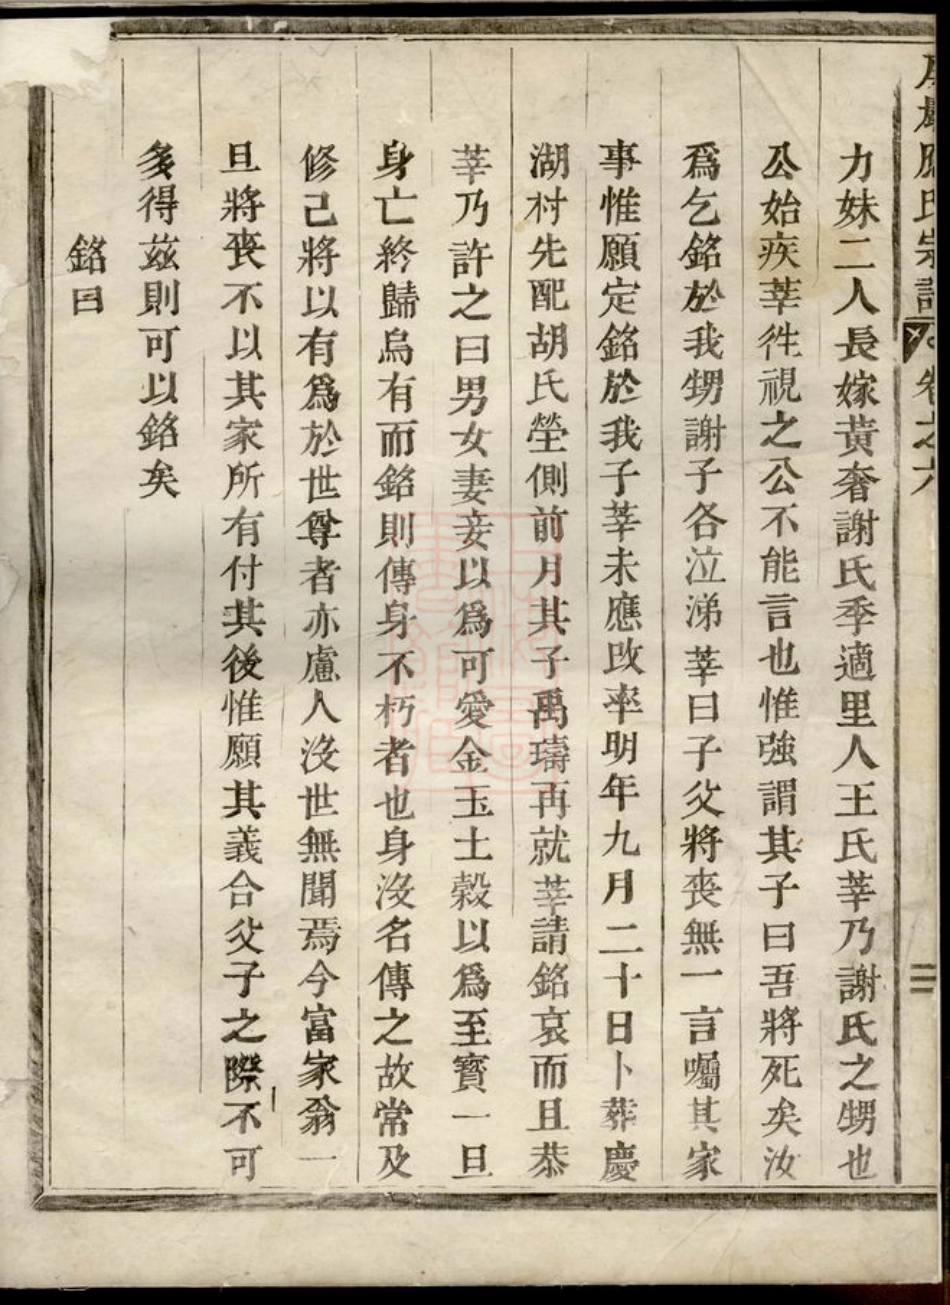 應氏宗譜 卷之六 三
力妹二人長嫁黃奢謝氏季適里人王氏莘乃謝氏之甥也
公始疾莘徃視之公不能言也惟強謂其子曰吾將死矣汝
爲乞銘於我甥謝子各泣涕莘曰子父將丧無一言囑其家
事惟願定銘於我子莘未應改率明年九月二十日卜葬慶
湖村先配胡氏塋側前月其子禹璹再就莘請銘哀而且恭
莘乃許之曰男女妻妾以爲可愛金玉土穀以爲至寳一旦
身亡終歸烏有而銘則傳身不朽者也身沒名傳之故常及
修己將以有爲於世尊者亦慮人沒世無聞焉今富家翁一
旦將丧不以其家所有付其後惟願其義合父子之際不可
多得兹則可以銘矣
銘曰